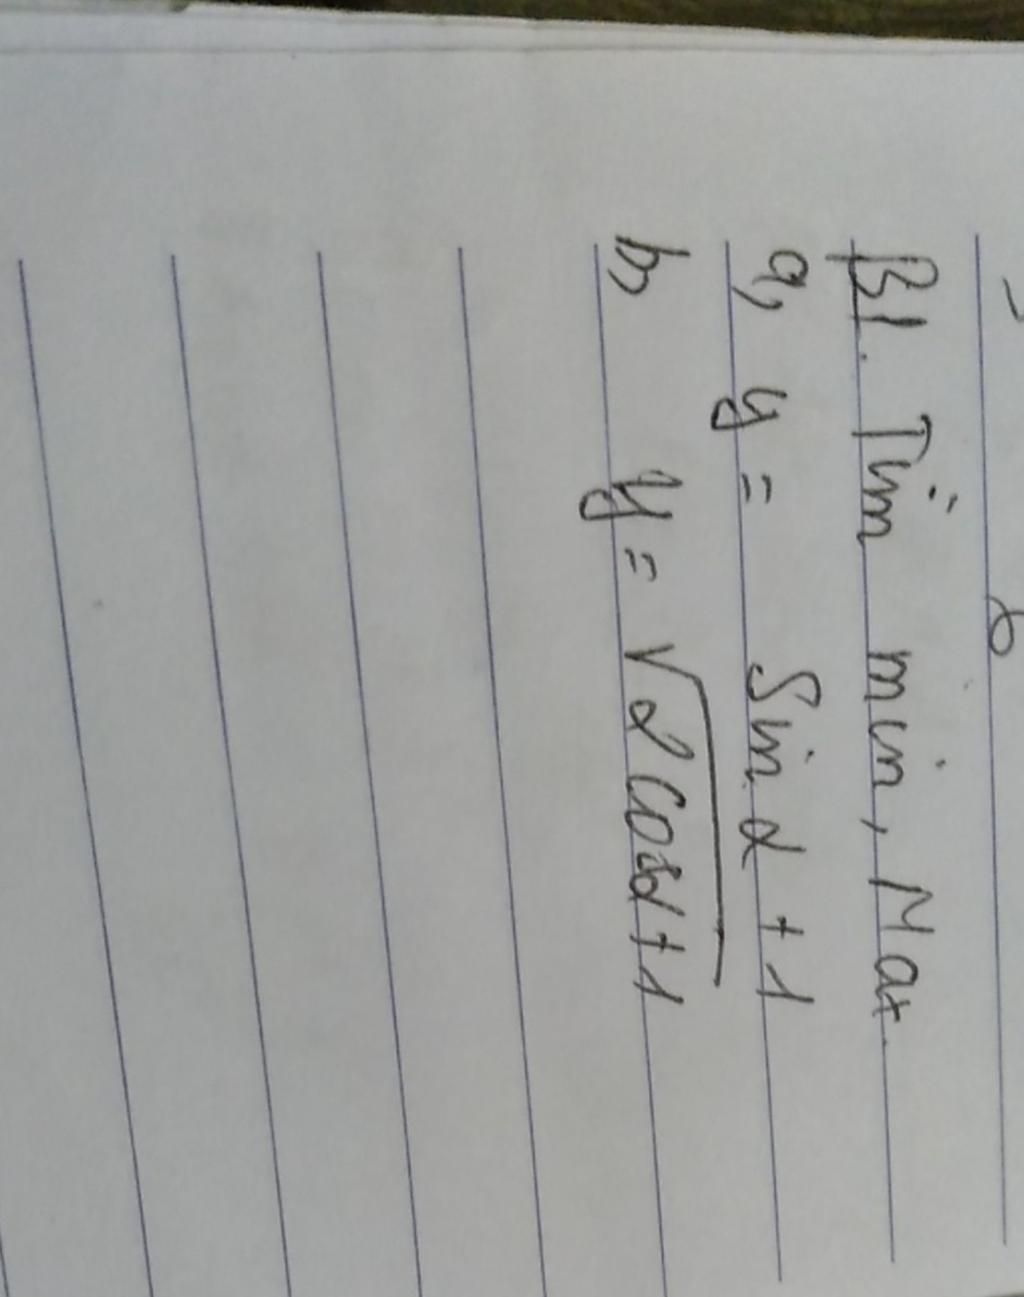 B1. Tìm min, Max.
a, y = Sin α + 1
b, y = √2cosα+1